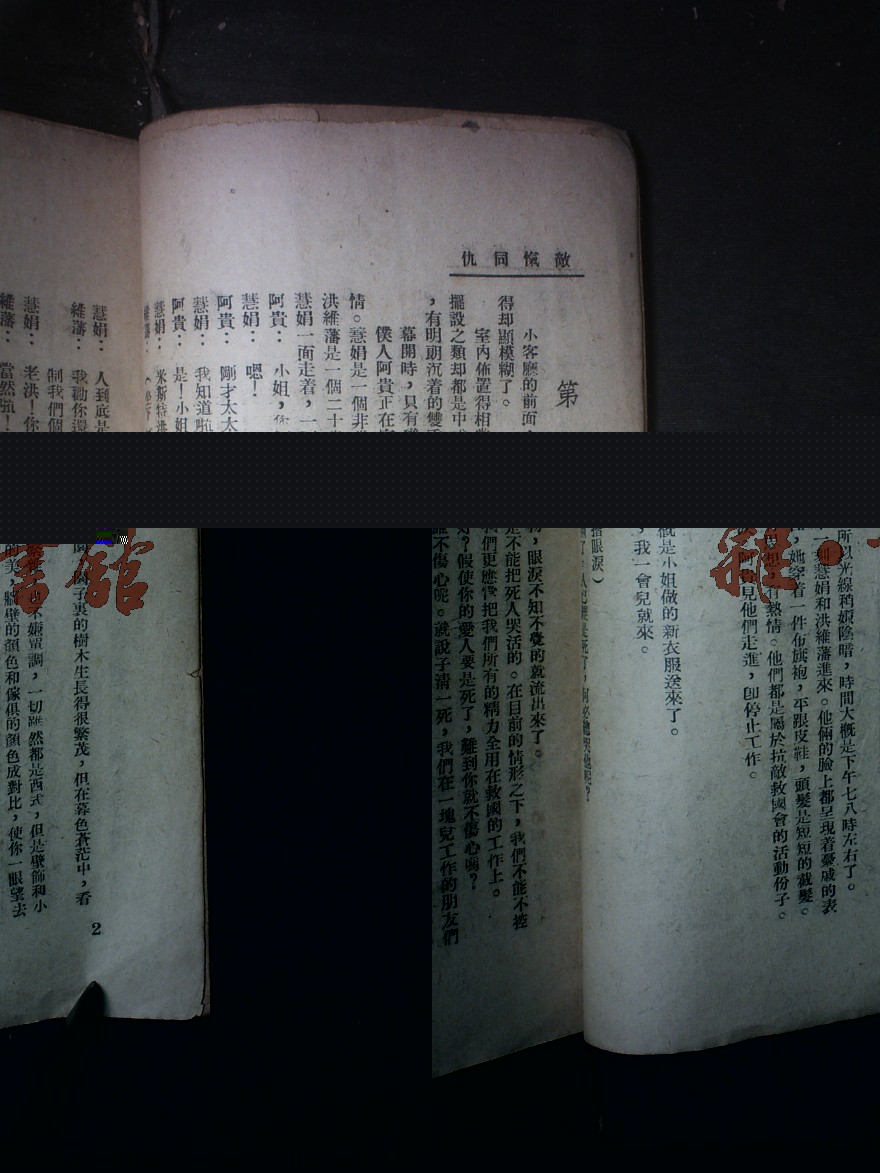 敵愾同仇
第
小客廳的前面，
得却顯模糊了。
室內佈置得相
擺設之類却都是中
，有明朗沉着的雙
幕開時，只有
僕人阿貴正在
情。慧娟是一個非
洪維藩是一個二十
慧娟一面走着，一
阿貴：小姐，
慧娟：嗯！
阿貴：剛才太太
慧娟：我知道啦
阿貴：是！小姐
慧娟：米斯特洪
慧娟：人到底是
維藩：我勸你還
制我們個
慧娟：老洪！你
維藩：當然啦！
書館
子裏的樹木生長得很繁茂，但在暮色蒼茫中，看
也不嫌單調，一切雖然都是西式，但是壁飾和小
的美，牆壁的顏色和傢俱的顏色成對比，使你一眼望去
2
所以光線稍嫌陰暗，時間大概是下午七八時左右了。
到慧娟和洪維藩進來。他倆的臉上都呈現着憂戚的表
，她穿着一件布旗袍，平跟皮鞋，頭髮是短短的截髮。
有熱情。他們都是屬於抗敵救國會的活動份子。
阿貴見他們走進，卽停止工作。
概是小姐做的新衣服送來了。
，我一會兒就來。
揩眼淚）
，眼淚不知不覺的就流出來了。
是不能把死人哭活的。在目前的情形之下，我們不能不控
我們更應當把我們所有的精力全用在救國的工作上。
？假使你的愛人要是死了，難到你就不傷心嗎？
不傷心呢。就說子清一死，我們在一塊兒工作的朋友們